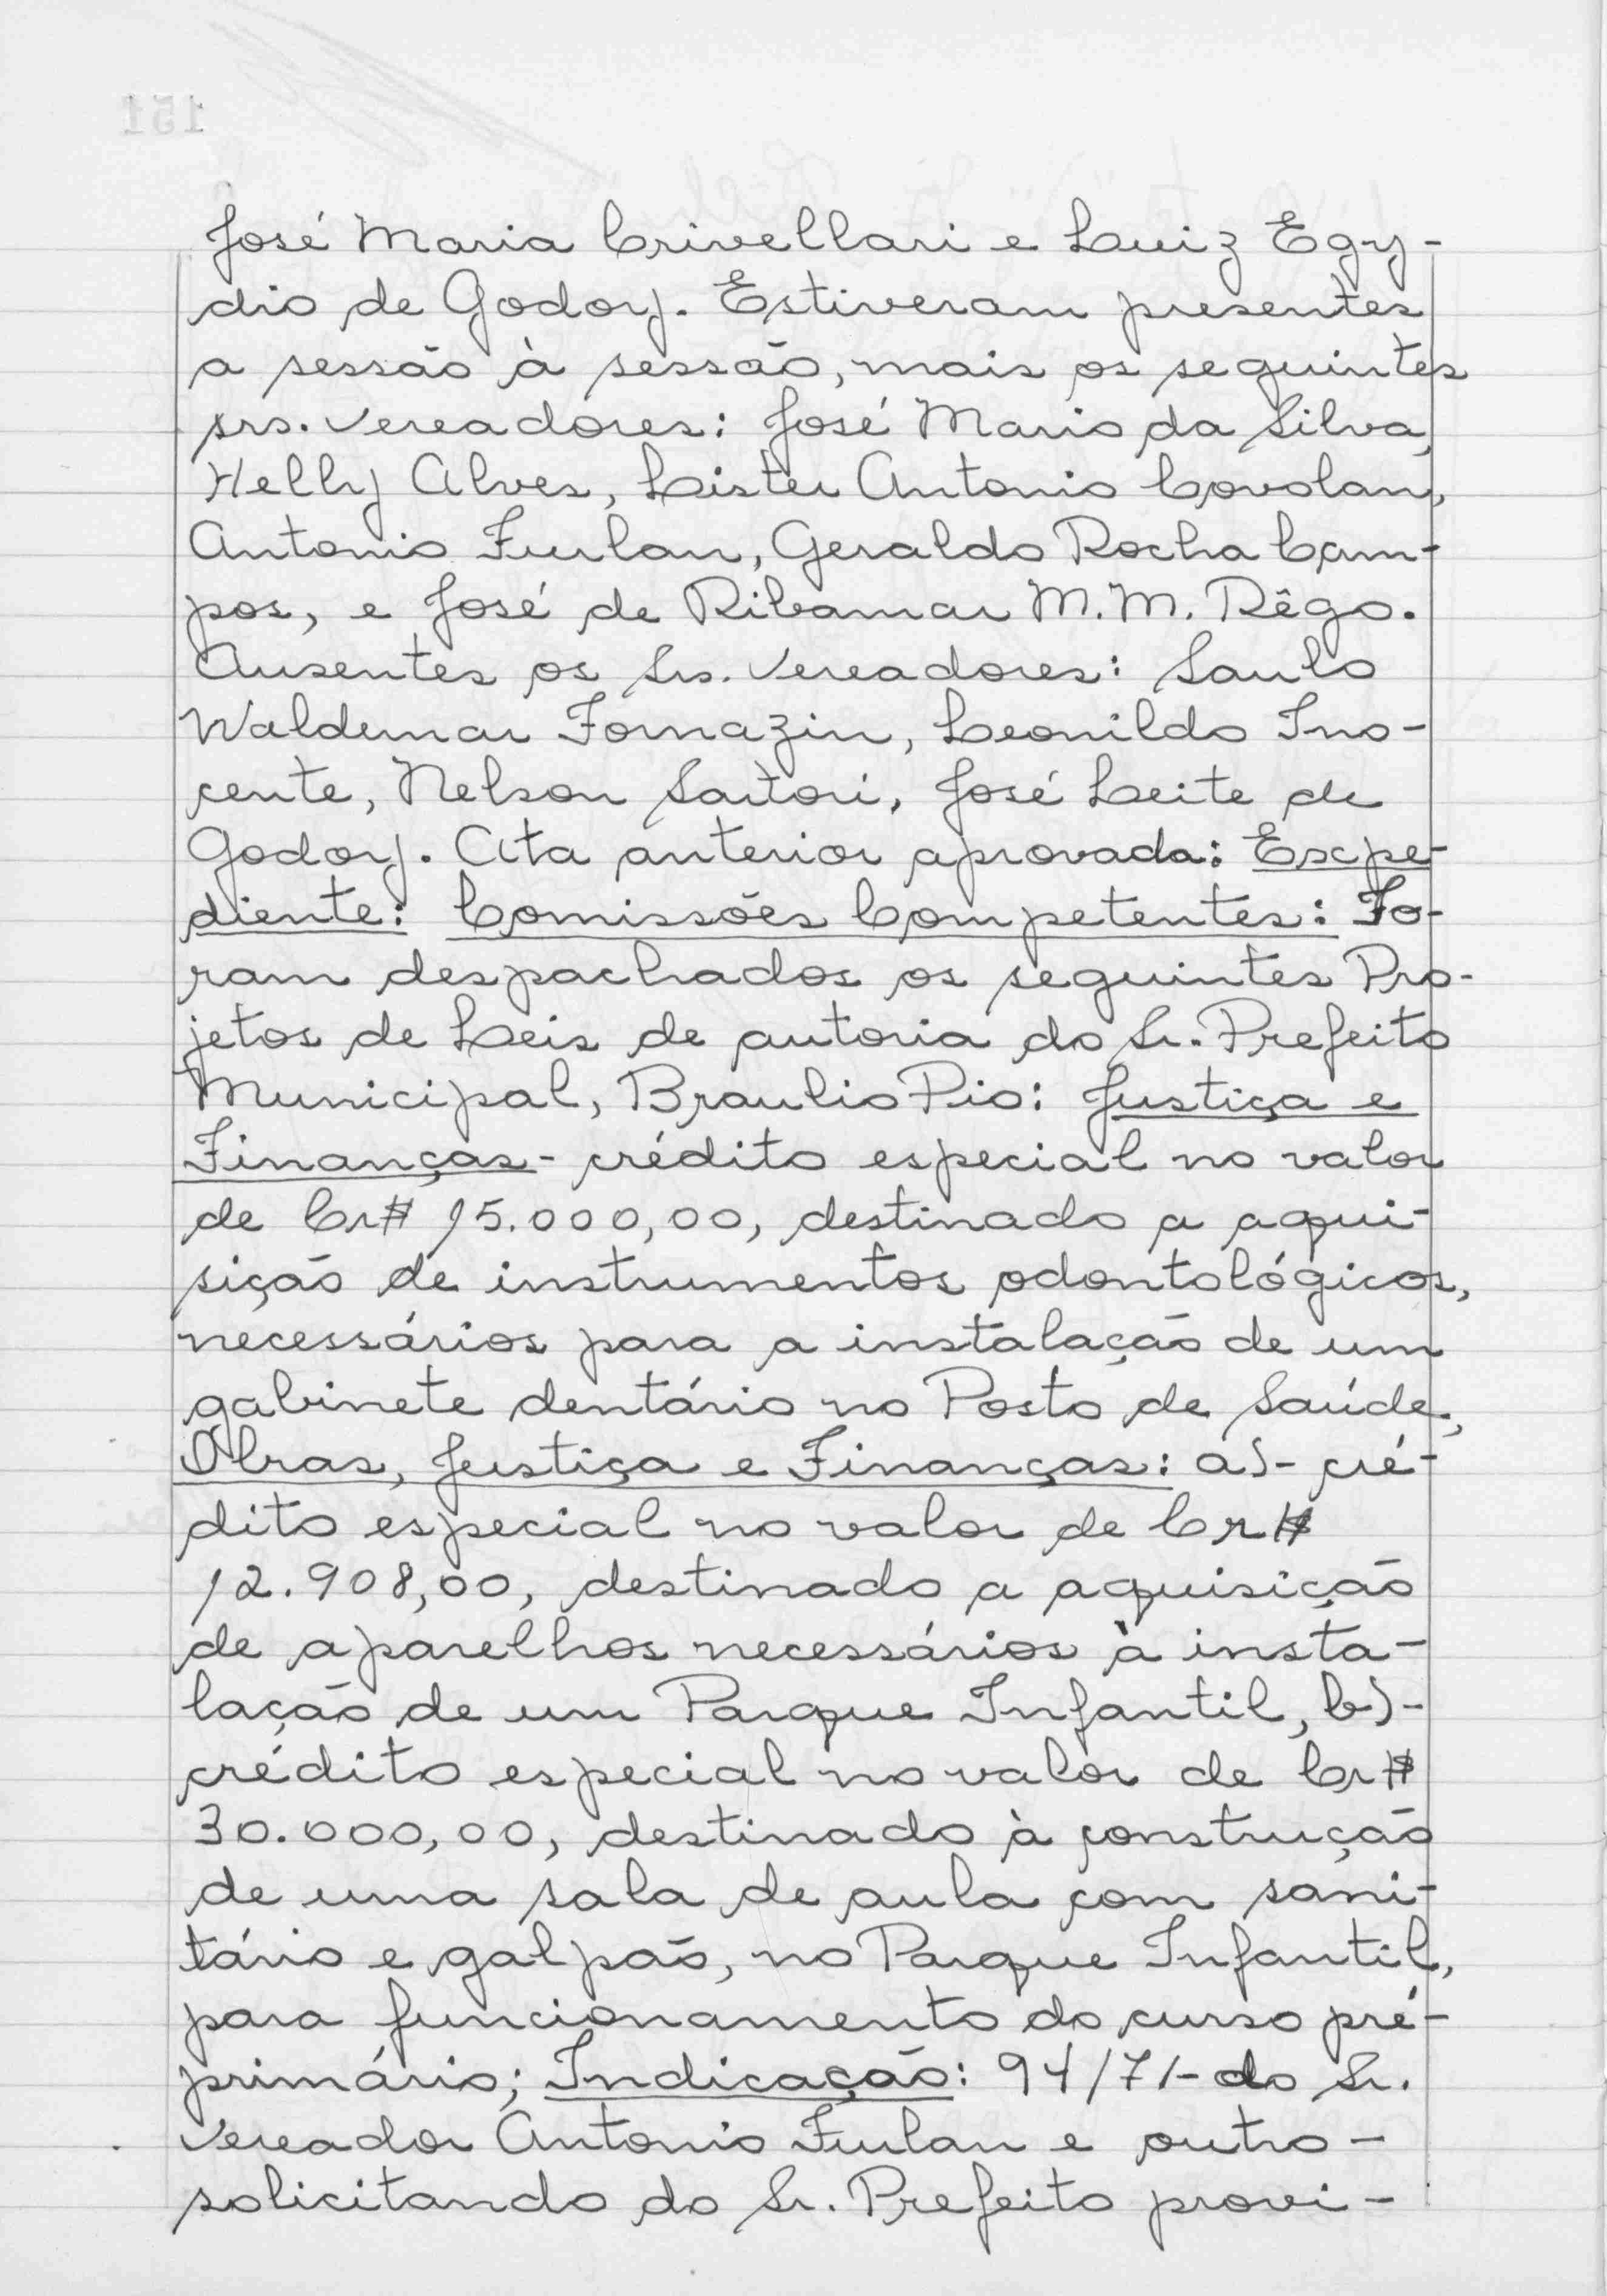 José Maria Crivellari e Luiz Egy-
dio de Godoy. Estiveram presentes
a sessão à sessão, mais os seguintes
srs. vereadores: José Mario da Silva,
Helly Alves, Lister Antonio Covolan,
Antonio Furlan, Geraldo Rocha Cam-
pos, e José de Ribamar M.M. Rêgo.
Ausentes os Srs. Vereadores: Saulo
Waldemar Fornazin, Leonildo Ino-
cente, Nelson Sartori, José Leite de
Godoy. Ata anterior aprovada: Expe-
diente: Comissões Competentes: Fo-
ram despachados os seguintes Pro-
jetos de Leis de autoria do Sr. Prefeito
Municipal, Braulio Pio: Justiça e
Finanças - crédito especial no valor
de Cr$ 15.000,00, destinado a aqui-
sição de instrumentos odontológicos,
necessários para a instalação de um
gabinete dentário no Posto de Saúde,
Obras, Justiça e Finanças: a)- cré-
dito especial no valor de Cr$
12.908,00, destinado a aquisição
de aparelhos necessários à insta-
lação de um Parque Infantil, b)-
crédito especial no valor de Cr$
30.000,00, destinado à construção
de uma sala de aula com sani-
tário e galpão, no Parque Infantil,
para funcionamento do curso pré-
primário; Indicação: 94/71- do Sr.
Vereador Antonio Furlan e outro -
solicitando do Sr. Prefeito provi-